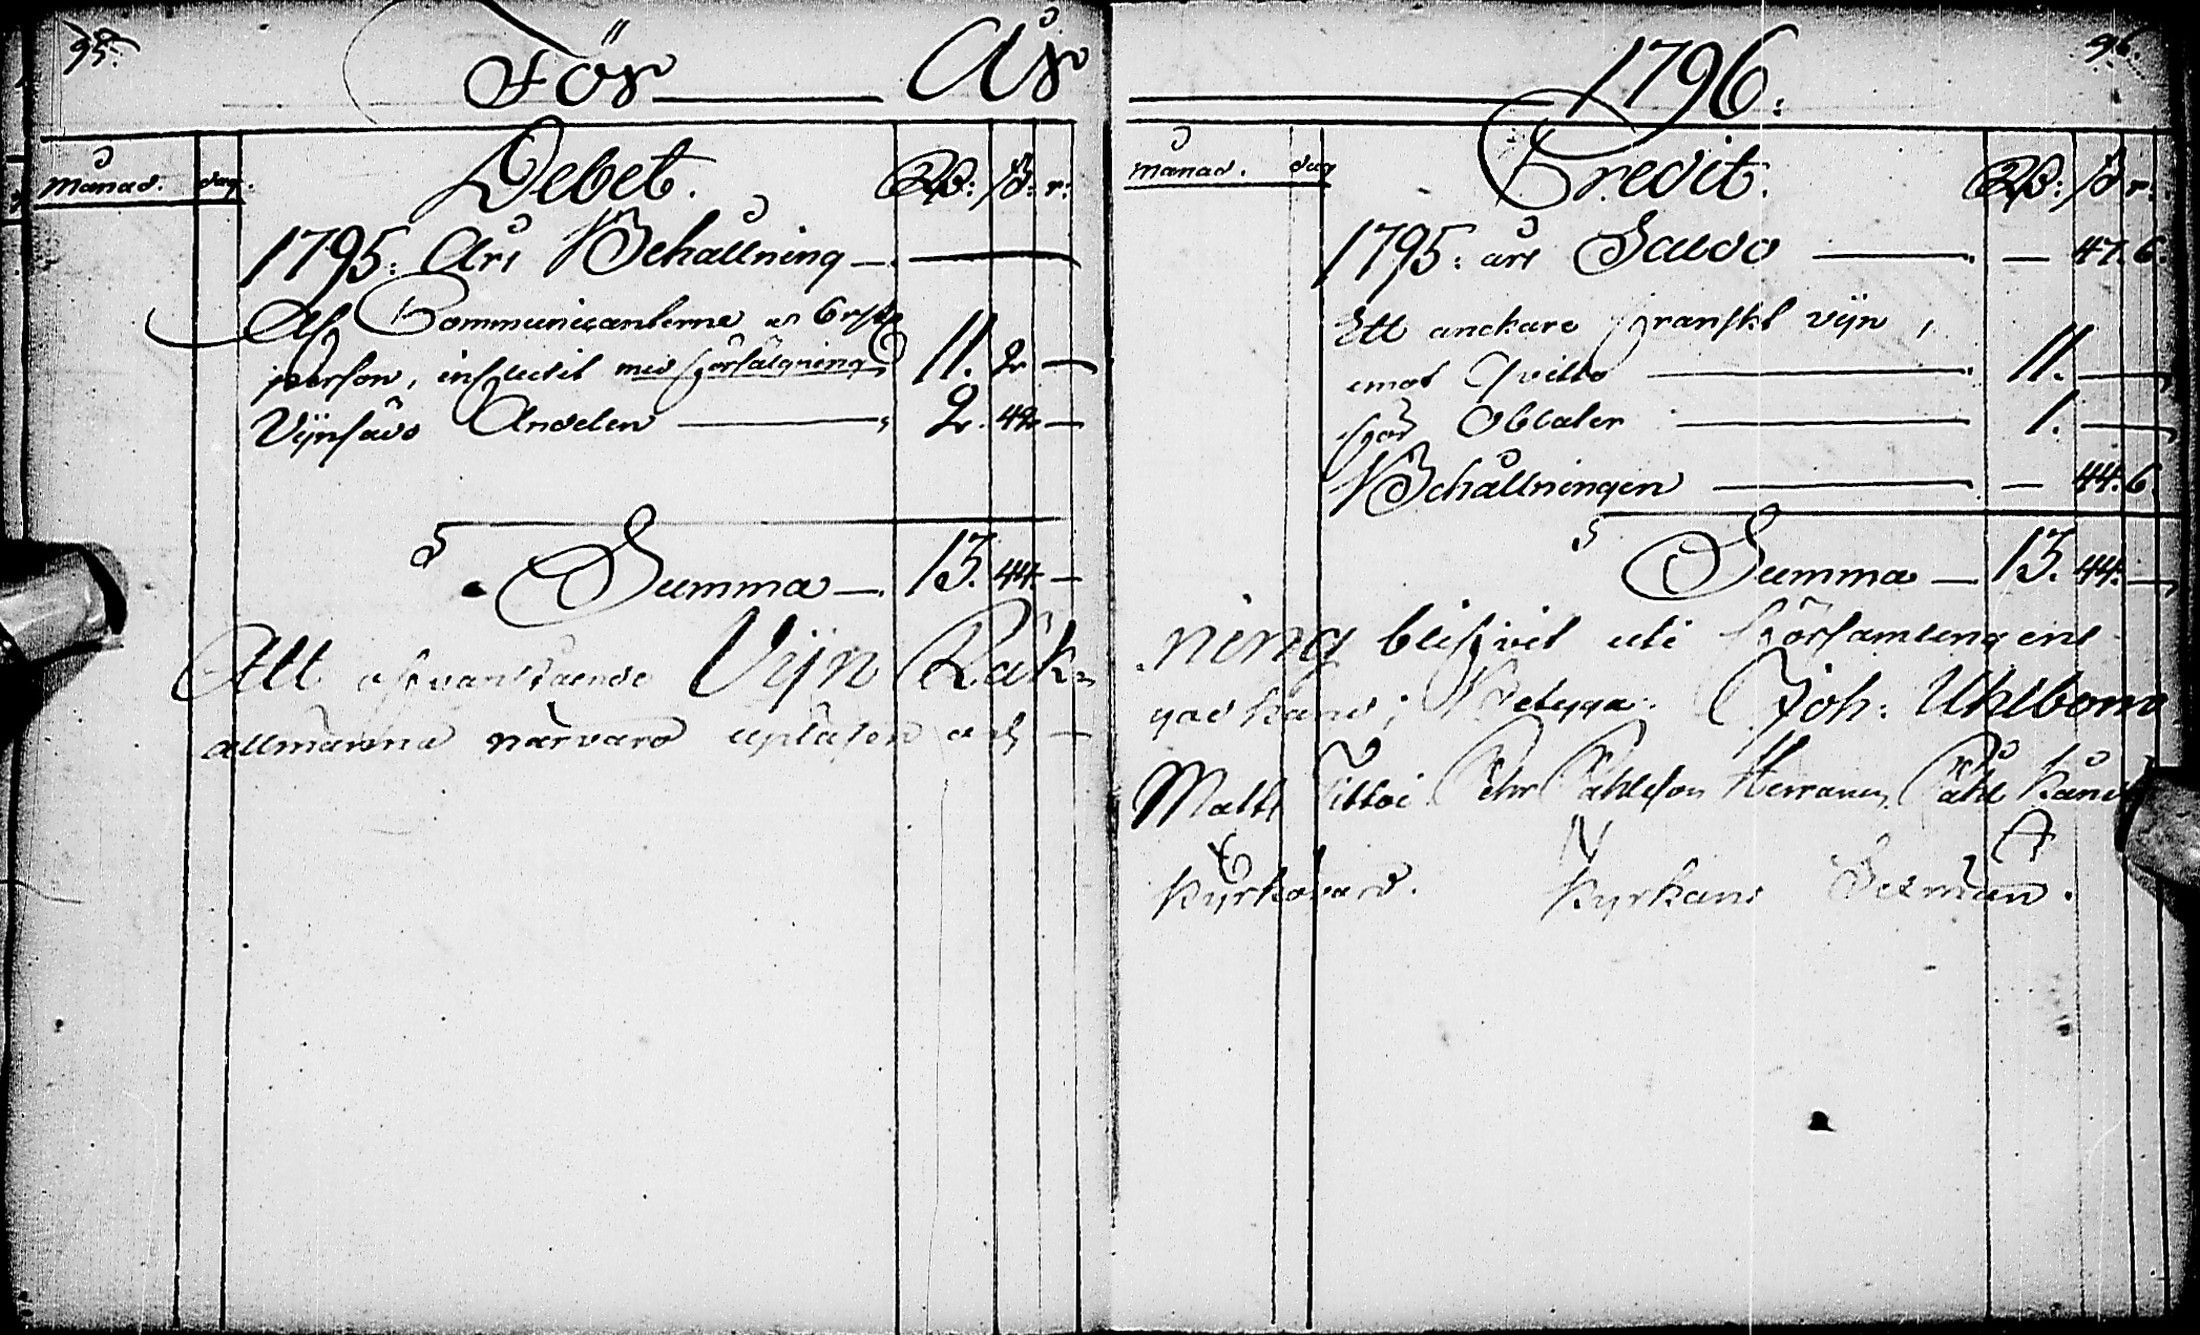 95.
För År
Månad. dag. Debet. Rd: ß: r:
1795: Års Behållning — —
Af Communicanterne à 6 r. st.
person, influtit med försälgning 11. 2 —
Vijnsäds Andelen — 2. 42 —
Summa — 13. 44 —
Att ofvanstående Vijn Räk=
allmänna närvaro upläsen och
96.
1796.
Månad. dag Credit. Rd: ß r:
1795: års Saldo — — 47. 6.
Ett anckare franskt vijn,
emot Qvitto — 11. —
för Oblater — 1. —
Behållningen — — 44. 6.
Summa — 13. 44. —
ning blifvit uti Församlingens
godkänd; Betyga: Joh: Uhlbom
Matts Pehr Påhlsson Herranen, Påhl
Kyrkovärd. Kyrkans Sexmän.